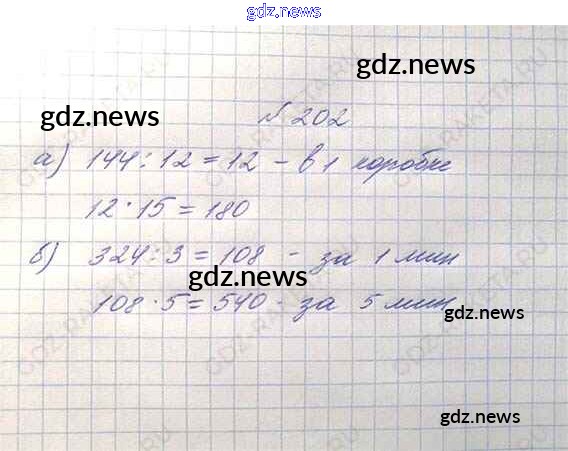 gdz.news
gdz.news
gdz.news
№ 202
а) 144 : 12 = 12 - в 1 коробке
12 · 15 = 180
б) 324 : 3 = 108 - за 1 мин
gdz.news
108 · 5 = 540 - за 5 мин
gdz.news
gdz.news